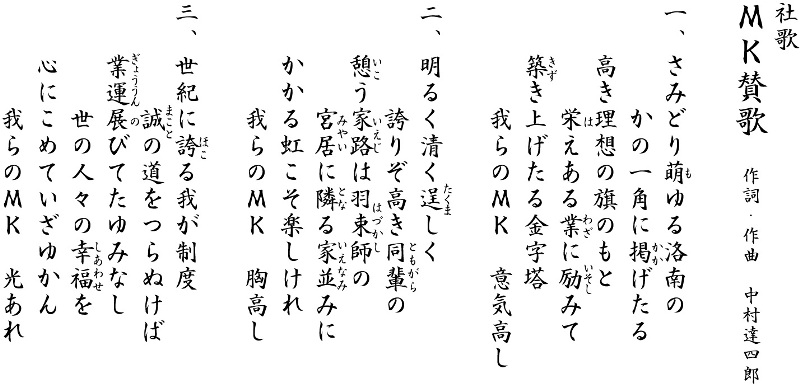 社歌
MK賛歌 作詞・作曲 中村達四郎
一、さみどり萌ゆる洛南の
かの一角に掲げたる
高き理想の旗のもと
栄えある業に励みて
築き上げたる金字塔
我らのMK 意気高し
二、明るく清く逞しく
誇りぞ高き同輩の
憩う家路は羽束師の
宮居に隣る家並みに
かかる虹こそ楽しけれ
我らのMK 胸高し
三、世紀に誇る我が制度
誠の道をつらぬけば
業運展びてたゆみなし
世の人々の幸福を
心にこめていざゆかん
我らのMK 光あれ